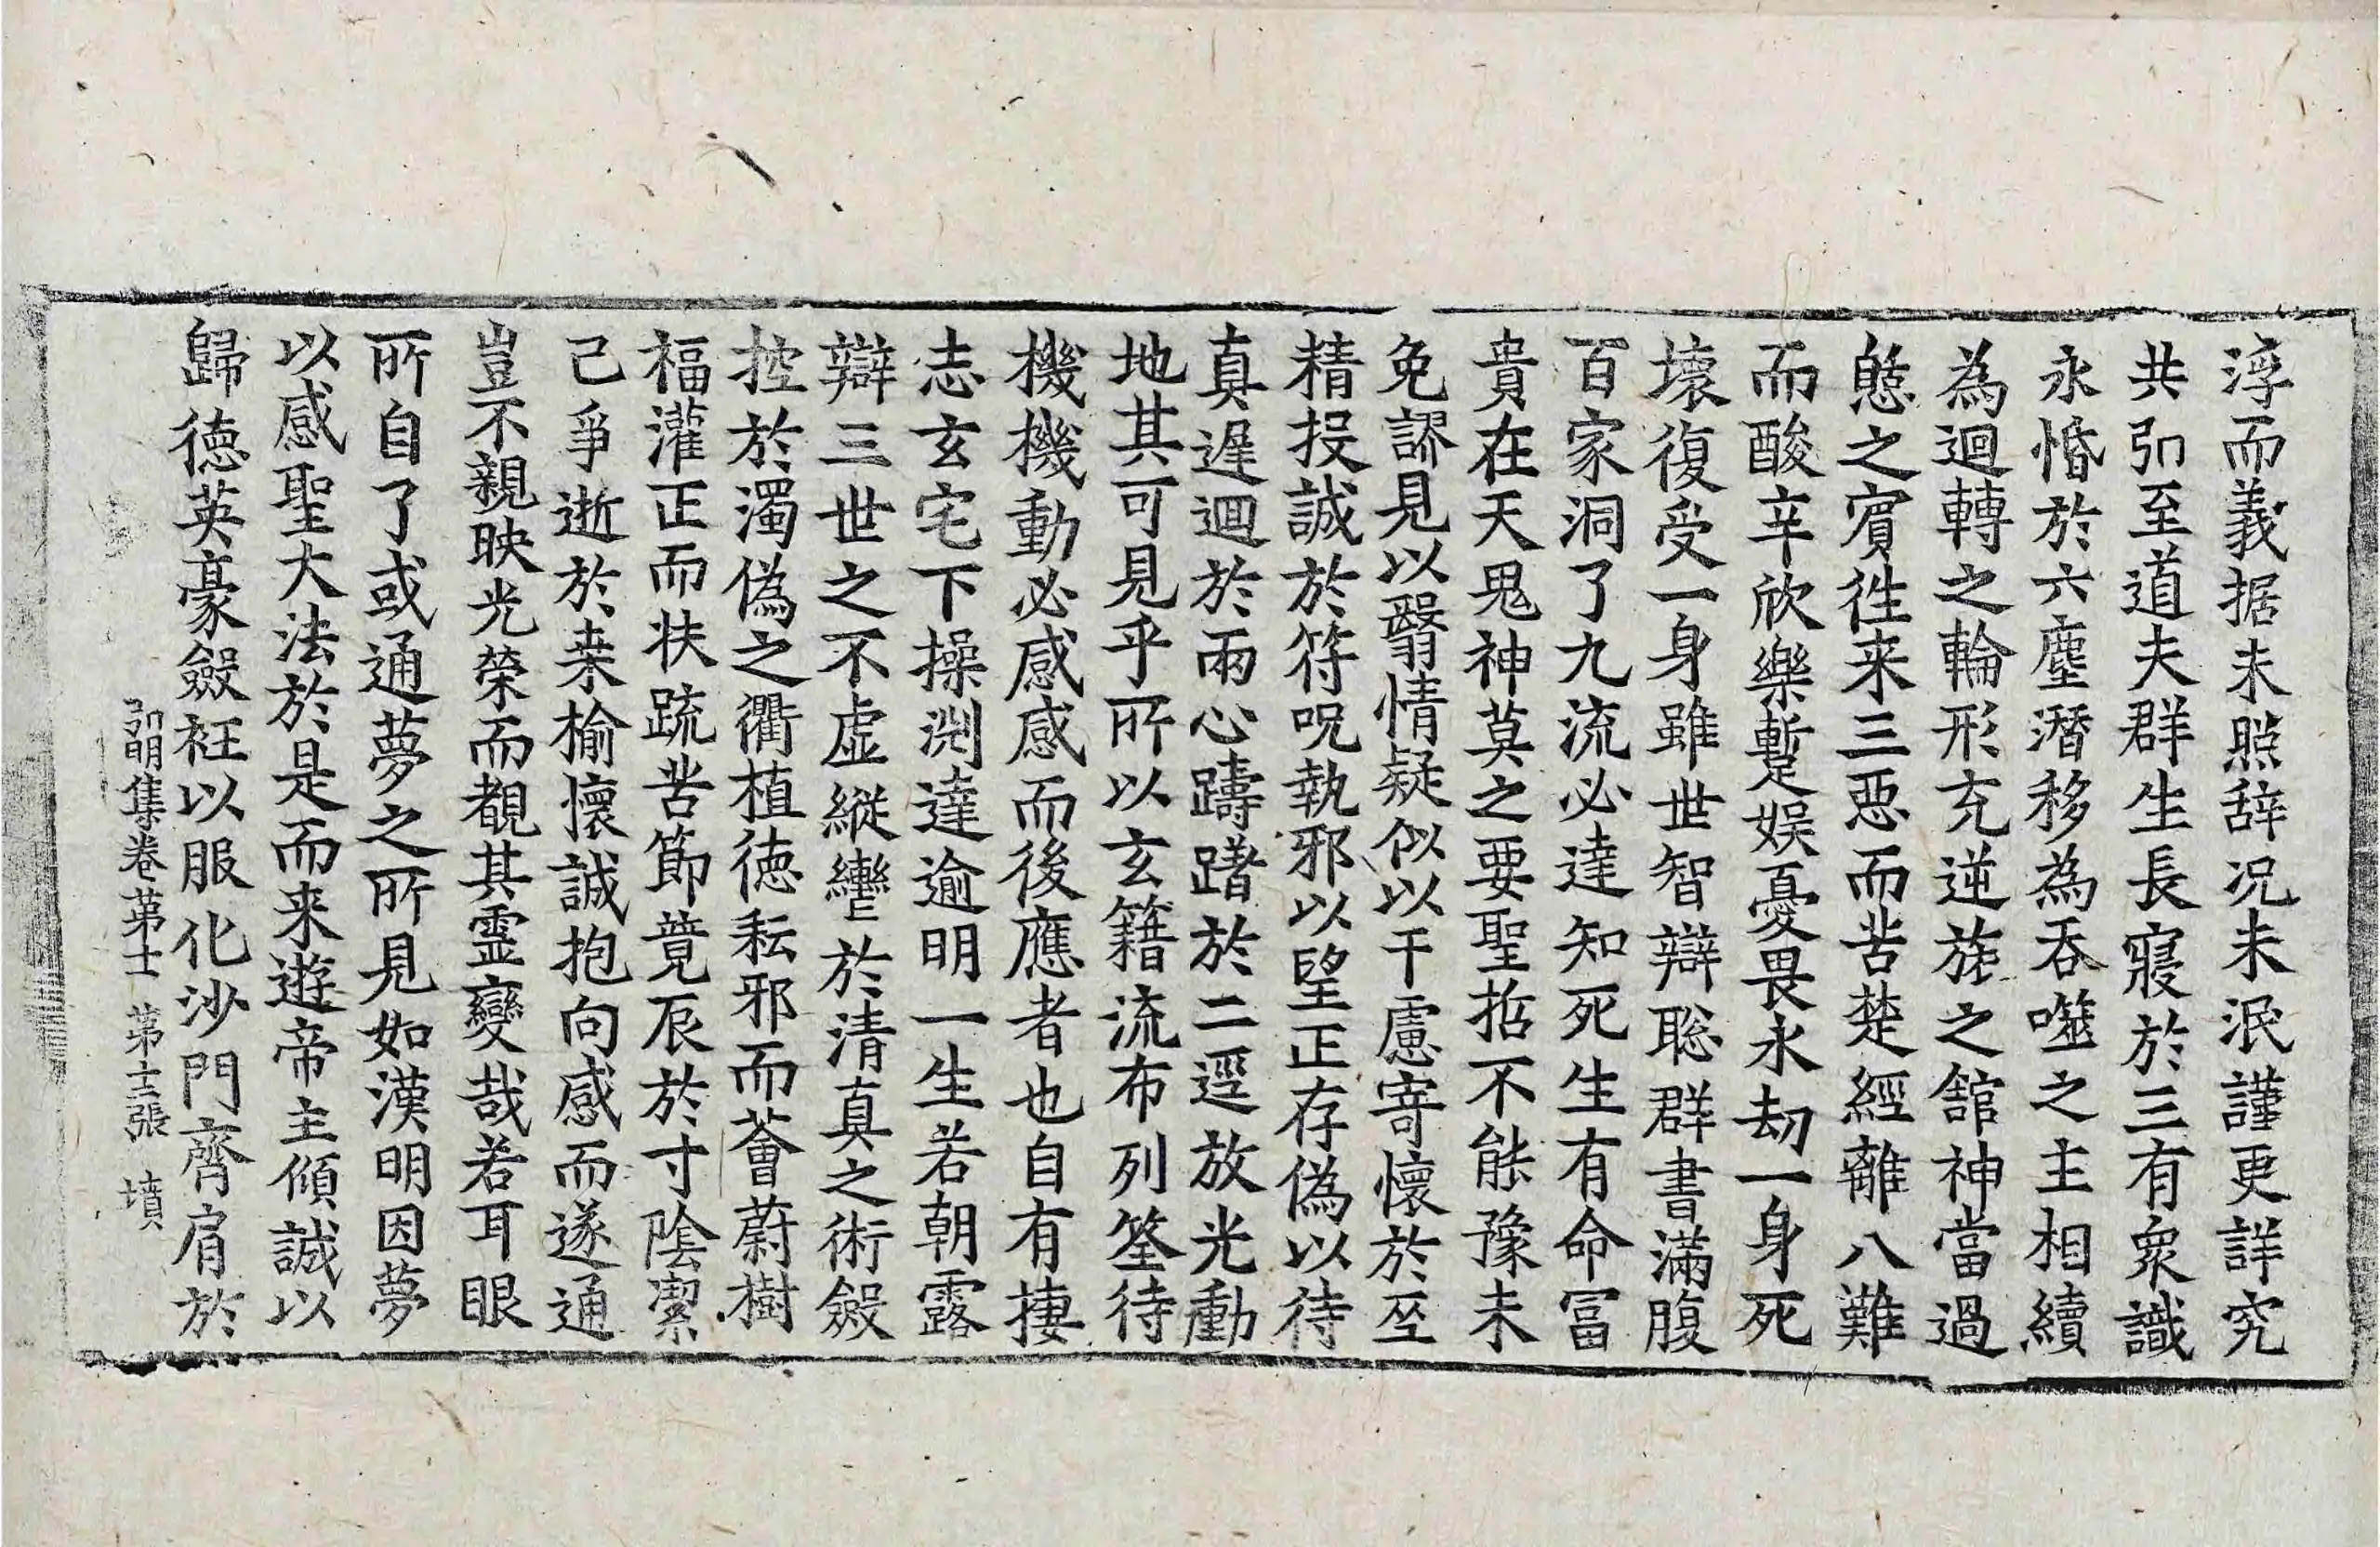 淳而義据未照辞况未泯謹更詳究
共引至道夫群生長寢於三有衆識
永惛於六塵潛移為吞噬之主相續
為迴轉之輪形充逆旅之舘神當過
憩之賓徃来三惡而苦楚經離八難
而酸辛欣樂暫娛憂畏永劫一身死
壞復受一身雖世智辯聡群書滿腹
百家洞了九流必達知死生有命冨
貴在天鬼神莫之要聖哲不能豫未
免謬見以翳情疑似以干慮寄懷於巫
精投誠於符呪執邪以望正存偽以待
真遲迴於兩心躊躇於二逕放光動
地其可見乎所以玄籍流布列筌待
機機動必感感而後應者也自有捿
志玄宅下操渕達逾明一生若朝露
辯三世之不虚縱轡於清真之術斂
控於濁偽之衢植徳耘邪而薈蔚樹
福灌正而扶踈苦節竟辰於寸陰潔
己爭逝於桒榆懷誠抱向感而遂通
豈不親映光榮而覩其霊變哉若耳眼
所自了或通夢之所見如漢明因夢
以感聖大法於是而来遊帝主傾誠以
歸徳英豪斂衽以服化沙門齊肩於
弘明集卷苐十一 苐十三張 墳